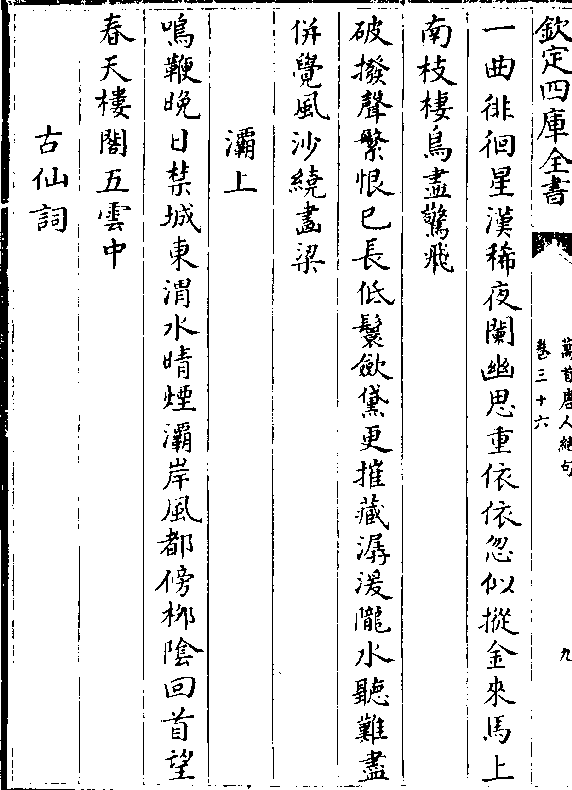 欽定四庫全書
萬首唐人絶句
卷三十六
九
一曲徘徊星漢稀夜闌幽思重依依忽似摐金來馬上
南枝棲鳥盡驚飛
破撥聲繁恨已長低鬟斂黛更摧藏潺湲隴水聽難盡
併覺風沙繞畫梁
灞上
鳴鞭晚日禁城東渭水晴煙灞岸風都傍柳陰回首望
春天樓閣五雲中
古仙詞